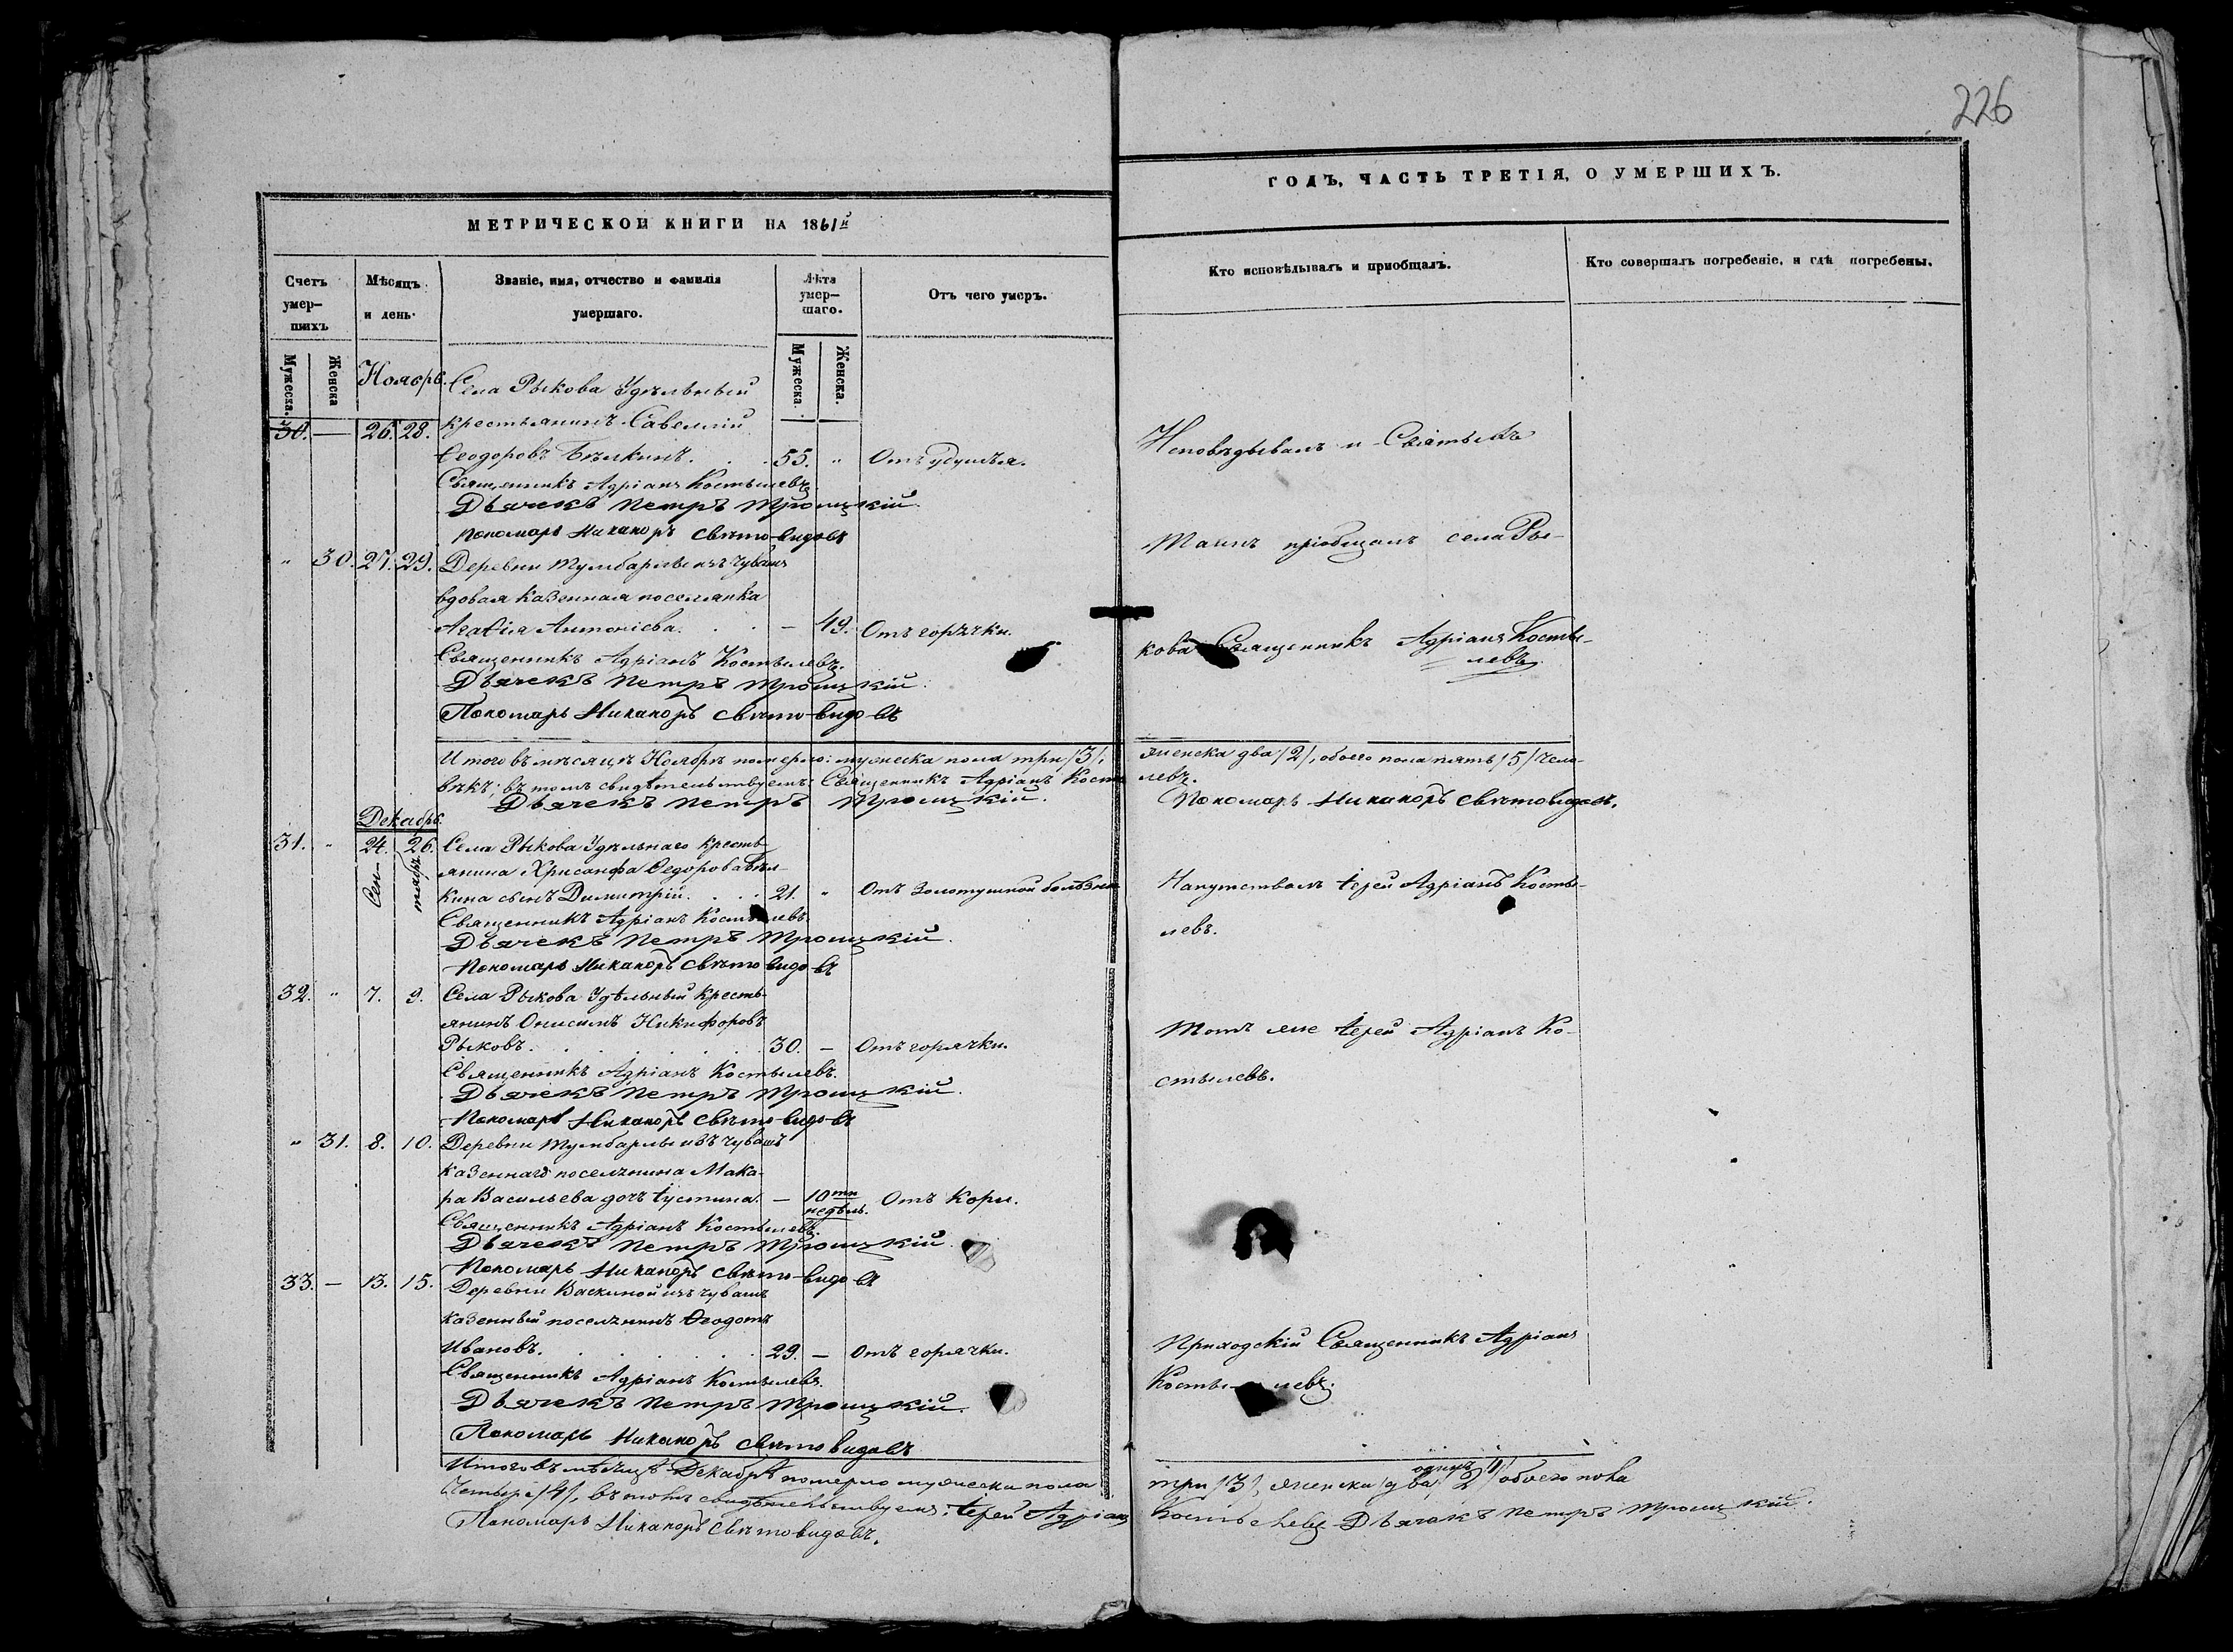 226
МЕТРИЧЕСКОЙ КНИГИ НА 1861й
ГОДЪ, ЧАСТЬ ТРЕТІЯ, О УМЕРШИХЪ.
Счетъ умер–шихъ
Мѣсяцъ и день.
Званіе, имя, отчество и фамилія умершаго.
Лѣта умер–шаго.
Отъ чего умеръ.
Кто исповѣдывалъ и пріобщалъ.
Кто совершалъ погребеніе, и гдѣ погребены.
Мужеска.
Женска
Мужеска.
Женска.
Ноябрь.
Села Рыкова Удѣльный
30. — 26. 28. крестьянинъ Савелій
Ѳеодоровъ Бѣлкинъ. . . 55. " Отъ удушья.
Священникъ Адріанъ Костылевъ.
Дьячекъ Петръ Троицкій.
Пономарь Никаноръ Свѣтовидовъ
Исповѣдывалъ и Святыхъ
Таинъ пріобщалъ села Ры-
кова Священникъ Адріанъ Косты-
левъ.
" 30. 27. 29. Деревни Тумбарлы изъ чувашъ
вдовая казенная поселянка
Агаѳія Антоніева. . . — 49. Отъ горячки.
Священникъ Адріанъ Костылевъ.
Дьячекъ Петръ Троицкій.
Пономарь Никаноръ Свѣтовидовъ
Итого въ мѣсяцѣ Ноябрѣ померло: мужеска пола три /3/, женска два /2/, обоего пола пять /5/ чело-
вѣкъ; въ томъ свидѣтельствуемъ: Священникъ Адріанъ Костылевъ.
Дьячекъ Петръ Троицкій. Пономарь Никаноръ Свѣтовидовъ.
Декабрь.
31. " 24. 26. Села Рыкова Удѣльнаго кресть-
Сен-
тябрь
янина Хрисанфа Ѳедорова Бѣл-
кина сынъ Димитрій. . . 21. " Отъ Золотушной болѣзни
Священникъ Адріанъ Костылевъ.
Дьячекъ Петръ Троицкій.
Пономарь Никаноръ Свѣтовидовъ
Напутствовалъ Іерей Адріанъ Косты-
левъ.
32. " 7. 9. Села Рыкова Удѣльный кресть-
янинъ Онисимъ Никифоровъ
Рыковъ. . . . . . 30. — Отъ горячки.
Священникъ Адріанъ Костылевъ.
Дьячекъ Петръ Троицкій.
Пономарь Никаноръ Свѣтовидовъ
Тотъ же Іерей Адріанъ Ко-
стылевъ.
" 31. 8. 10. Деревни Тумбарлы изъ чувашъ
казеннаго поселянина Мака-
ра Васильева дочь Іустина. — 10ти недѣль. Отъ Кори.
Священникъ Адріанъ Костылевъ.
Дьячекъ Петръ Троицкій.
Пономарь Никаноръ Свѣтовидовъ
33. — 13. 15. Деревни Васкиной изъ чувашъ
казенный поселянинъ Ѳеодотъ
Ивановъ. . . . . . 29. — Отъ горячки.
Священникъ Адріанъ Костылевъ.
Дьячекъ Петръ Троицкій.
Пономарь Никаноръ Свѣтовидовъ
Приходскій Священникъ Адріанъ
Костылевъ.
Итого въ мѣсяцѣ Декабрѣ померло мужеска пола три /3/, женски /два/ 2/ одинъ /1/ обоего пола
Четыре /4/, въ томъ свидѣтельствуемъ: Іерей Адріанъ Костылевъ Дьячекъ Петръ Троицкій.
Пономарь Никаноръ Свѣтовидовъ.